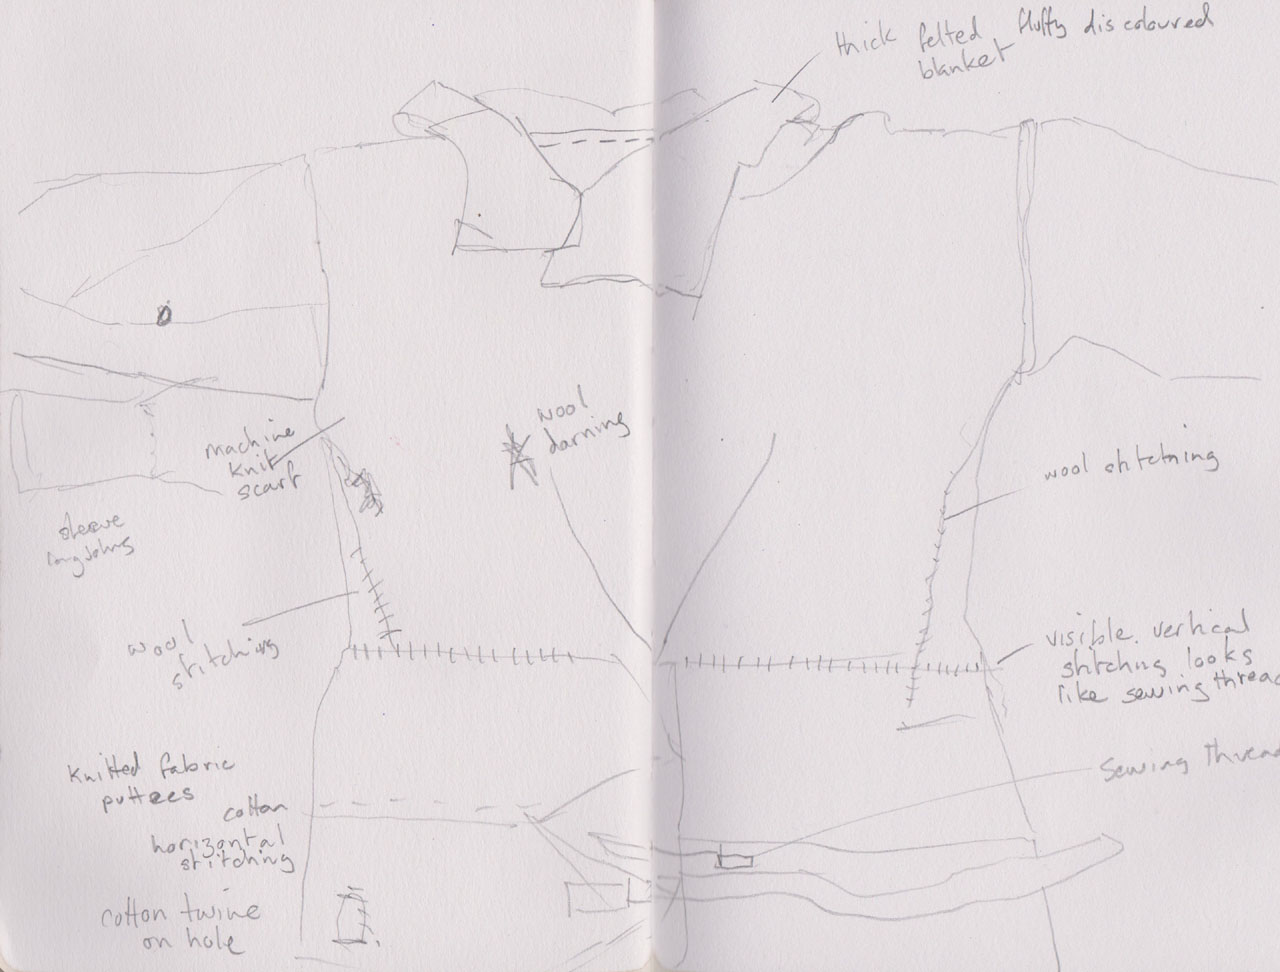 thick felted fluffy discoloured
blanket
wool
darning
machine
knit
scarf
wool stitching
sleeve
long johns
wool
stitching
visible. vertical
stitching looks
like sewing thread
Knitted fabric
puttees
Sewing thread
cotton
horizontal
stitching
cotton twine
on hole